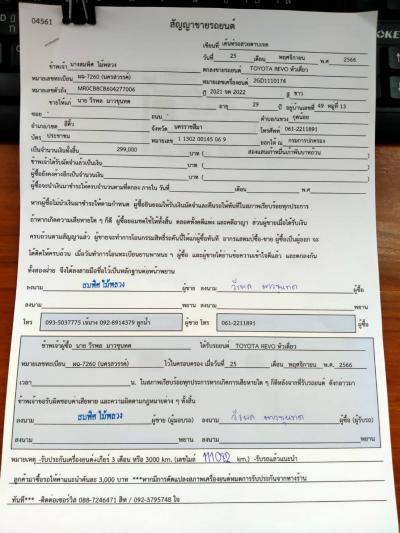 04561
สัญญาขายรถยนต์
เขียนที่ เต้นท์รถสวยตามเจต
วันที่ 25 เดือน พฤศจิกายน พ.ศ. 2566
ข้าพเจ้า นางสมพิศ ไม้พลวง ตกลงขายรถยนต์ TOYOTA REVO หัวเดี่ยว
หมายเลขทะเบียน ผฉ-7260 (นครสวรรค์) หมายเลขเครื่อง 2GD1110174
หมายเลขตัวถัง MR0CB8CB604277006 ปี 2021 จด 2022 สี ขาว
ขายให้แก่ นาย วีรพล มาวขุนทด อายุ 29 ปี อยู่บ้านเลขที่ 49 หมู่ที่ 13
ซอย ถนน ตำบล/แขวง กุดน้อย
อำเภอ/เขต สีคิ้ว จังหวัด นครราชสีมา โทรศัพท์ 061-2211891
บัตร ประชาชน หมายเลข 1 1302 00145 06 9 ออกให้ ณ กรมการปกครอง
เป็นจำนวนเงินทั้งสิ้น 299,000 บาท ( สองแสนเก้าหมื่นเก้าพันบาทถ้วน )
ข้าพเจ้าได้รับมัดจำแล้วเป็นเงิน บาท ( )
ผู้ซื้อยังคงค้างอีกเป็นจำนวนเงิน บาท ( )
ผู้ซื้อจะนำเงินมาชำระให้ครบจำนวนตามที่ตกลง ภายใน วันที่ เดือน พ.ศ.
หากผู้ซื้อไม่นำเงินมาชำระให้ตามกำหนด ผู้ซื้อยินยอมให้ริบเงินมัดจำและคืนรถให้ทันทีในสภาพเรียบร้อยทุกประการ
ถ้าหากเกิดความเสียหายใด ๆ ก็ดี ผู้ซื้อยอมชดใช้ให้ทั้งสิ้น ตลอดทั้งคดีแพ่ง และคดีอาญา ส่วนผู้ขายเมื่อได้รับเงิน
ครบถ้วนตามสัญญาแล้ว ผู้ขายจะทำการโอนกรรมสิทธิ์รถคันนี้ให้แก่ผู้ซื้อทันที
ทั้งสองฝ่าย จึงได้ลงลายมือชื่อไว้เป็นหลักฐานต่อหน้าพยาน
ลงนาม สมพิศ ไม้พลวง ผู้ขาย วีรพล มาวขุนทด ผู้ซื้อ
ลงนาม พยาน ลงนาม พยาน
โทร 093-5037775 เจ้นาง 092-8914379 ลูกน้ำ ผู้ขาย โทร 061-2211891 ผู้ซื้อ
ข้าพเจ้าผู้ซื้อ นาย วีรพล มาวขุนทด ได้รับรถยนต์ TOYOTA REVO หัวเดี่ยว
หมายเลขทะเบียน ผฉ-7260 (นครสวรรค์) ไว้ในครอบครอง เมื่อวันที่ 25 เดือน พฤศจิกายน พ.ศ. 2566
เวลา น. ในสภาพเรียบร้อยทุกประการหากเกิดการเสียหายใด ๆ ก็ดีหลังจากที่รับรถยนต์ ดังกล่าวมา
ข้าพเจ้าจะรับผิดชอบค่าเสียหาย และความผิดตามกฎหมายต่าง ๆ ทั้งสิ้น
ลงนาม สมพิศ ไม้พลวง ผู้ขาย (ผู้มอบรถ) ลงนาม วีรพล มาวขุนทด ผู้ซื้อ (ผู้รับรถ)
ลงนาม พยาน ลงนาม พยาน
หมายเหตุ -รับประกันเครื่องยนต์+เกียร์ 3 เดือน หรือ 3000 km. (เลขไมล์ 111082 km.) -รับรถแล้วแนะนำ
ลูกค้ามาซื้อรถให้ค่าแนะนำคันละ 3,000 บาท ***หากมีการดัดแปลงสภาพเครื่องยนต์หมดการรับประกันจากทางร้าน
ทันที*** -ติดต่อเซอร์วิส 088-7246471 สิท / 092-3795748 ใจ